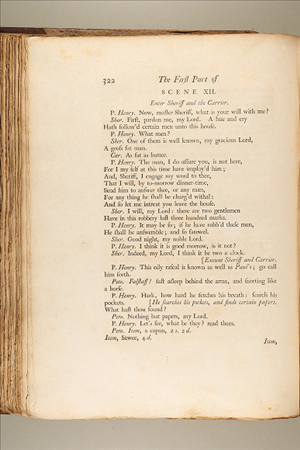 322 The First Part of
SCENE XII.
Enter Sheriff and the Carrier.
P. Henry. Now, master Sheriff, what is your will with me?
Sher. First, pardon me, my Lord. A hue and cry
Hath follow'd certain men unto this house.
P. Henry. What men?
Sher. One of them is well known, my gracious Lord,
A gross fat man.
Car. As fat as butter.
P. Henry. The man, I do assure you, is not here,
For I my self at this time have imploy'd him;
And, Sheriff, I engage my word to thee,
That I will, by to-morrow dinner-time,
Send him to answer thee, or any man,
For any thing he shall be charg'd withal:
And so let me intreat you leave the house.
Sher. I will, my Lord: there are two gentlemen
Have in this robbery lost three hundred marks.
P. Henry. It may be so; if he have robb'd these men,
He shall be answerable; and so farewel.
Sher. Good night, my noble Lord.
P. Henry. I think it is good morrow, is it not?
Sher. Indeed, my Lord, I think it be two a clock.
[Exeunt Sheriff and Carrier.
P. Henry. This oily rascal is known as well as Paul's; go call
him forth.
Peto. Falstaff! fast asleep behind the arras, and snorting like
a horse.
P. Henry. Hark, how hard he fetches his breath: search his
pockets. [He searches his pockets, and finds certain papers.
What hast thou found?
Peto. Nothing but papers, my Lord.
P. Henry. Let's see, what be they? read them.
Peto. Item, a capon, 2 s. 2 d.
Item, Sawce, 4 d.
Item,